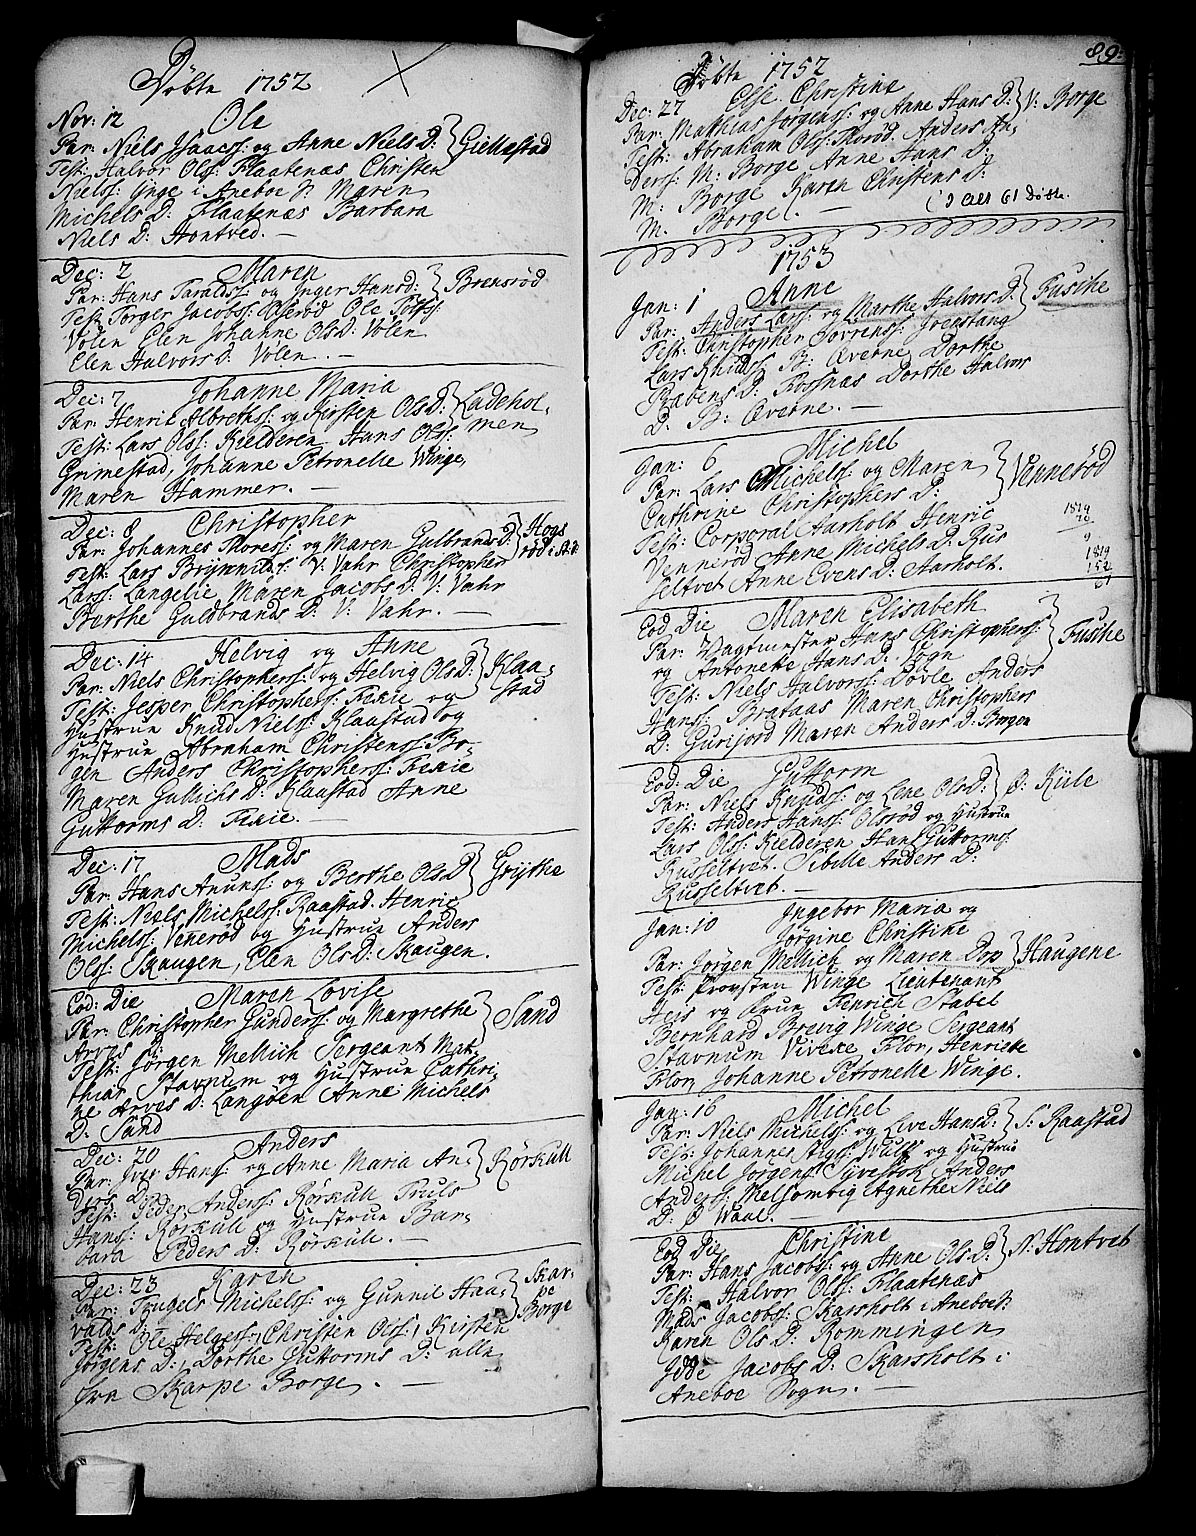 Döbte 1752
Nov: 12 Ole
Par: Niels Isaacs: og Anne Niels D: } Giellestad
Test: Halvor Ols: Flaatenæs Christen
Niels: Ynge i Aneboe P: Maren
Michels D: Flaatenæs Barbara
Niels D: Hontved. —
Dec: 2 Maren
Par: Hans Taralds: og Inger Hans D: } Brensrød
Test: Torger Jacobs: Olserød Ole
Volen Elen Johanne Ols D: Volen
Elen Halvors D: Volen. —
Dec: 7 Johanne Maria
Par: Henric Albreths: og Kirsten Ols D: } Ladehol-
Test: Lars Ols: Kielderen Hans Ols: men
Grimestad, Johanne Petronelle Winge,
Maren Hammer. —
Dec: 8 Christopher
Par: Johannes Thores: og Maren Gulbrands D: } Hogs
Test: Lars Brynnilds: V: Vahr Christopher rød
Lars: Langelie Maren Jacobs D: V: Vahr
Berthe Guldbrands D: V: Vahr. —
Dec: 14 Helvig og Anne
Par: Niels Christophers: og Helvig Ols D: } Klaa-
Test: Jesper Christophers: Fexie og stad
Hustrue Knud Niels: Klaastad og
Hustrue Abraham Christens: Bor-
gen Anders Christophers: Fexie
Maren Gullichs D: Klaastad Anne
Guttorms D: Fexie. —
Dec: 17 Mads
Par: Hans Anuns: og Berthe Ols D } Grytte
Test: Niels Michels: Raastad. Henric
Michels: Venerød og Hustrue Anders
Ols: Skaugen, Elen Ols D: Skaugen.
Eod: Die Maren Lovise
Par: Christopher Gunders: og Margrethe } Sand
Arves D:
Test: Jørgen Mellich Sergeant Mat-
thias Stavnum og Hustrue Cathri-
ne Arves D: Langøen Anne Michels
D: Sand
Dec: 20 Anders
Par: Iver Hans: og Anne Maria An- } Rørkull
ders D:
Test: Peder Anders: Rørkull Truls
Hans: Rørkull og Hustrue Bar-
bara Peders D: Rørkull. —
Dec: 23 Karen
Par: Trugels Michels: og Gunnil Haa- } Skar-
valds D: — pe
Test: Ole Helges: Christen Ols: Kirsten Borge
Jørgens D: Dorthe Guttorms D: alle
fra Skarpe Borge. —
89:
Döbte 1752
Dec: 27 Else Christine
Par: Mathias Jørgens: og Anne Hans D: } V: Borge
Test: Abraham Ols: Thorød. Anders An-
ders: M: Borge Anne Hans D:
M: Borge Karen Christens D:
M: Borge. — 61 döbte.
1753
Jan: 1 Anne
Par: Anders Lars: og Marthe Halvors D: } Fusche
Test: Christopher Sørrens: Joenstang
Lars Knuds: B: Æverne Dorthe
Rabens D: Rosnæs Dorthe Halvor
D: B: Æverne. —
Jan: 6 Michel
Par: Lars Michels: og Maren } Vennerød
Cathrine Christophers D:
Test: Corporal Aarholt Henric
Vennerød Anne Michels D: Rus
seltvet Anne Evens D: Aarholt.
1819
152
61
Eod Die Maren Elisabeth
Par: Vagtmester Hans Christophers: } Fusche
og Antonette Hans D: Sogn
Test: Niels Halvors: Døvle Anders
Hans: Brataas Maren Christophers
D: Gurisord Maren Anders D: Borgen
Eod: Die Guttorm
Par: Niels Knuds: og Lene Ols D: } Ø: Kiile
Test: Anders Hans: Olsrød og Hustrue
Lars Ols: Kielderen Hans Guttorms:
Russeltvet. Sibille Anders D:
Russeltvet. —
Jan: 10 Ingebor Maria og
Jørgine Christine
Par: Jørgen Mellich og Maren Dop } Haugene
Test: Provsten Winge Lieutenant
Heis og Frue Henrich Stabel
Bernhard Brevig Winge Sergeant
Stavnum Viveke Flor, Henriette
Flor, Johanne Petronelle Winge.
Jan: 16 Michel
Par: Niels Michels: og Live Hans D: } S: Raastad
Test: Johannes Stigs: og Hustrue
Michel Jørgens: Anders
Anders: Melsombig Agnethe Niels
D: Ø Waal. —
Eod Die Christine
Par: Hans Jacobs: og Anne Ols D: } N: Hontvet
Test: Halvor Ols: Flaatenæs
Mads Jacobs: Skarsholt i Aneboe P:
Karen Ols D: Rommingen
Idde Jacobs D: Skarsholt i
Aneboe Sogn. —